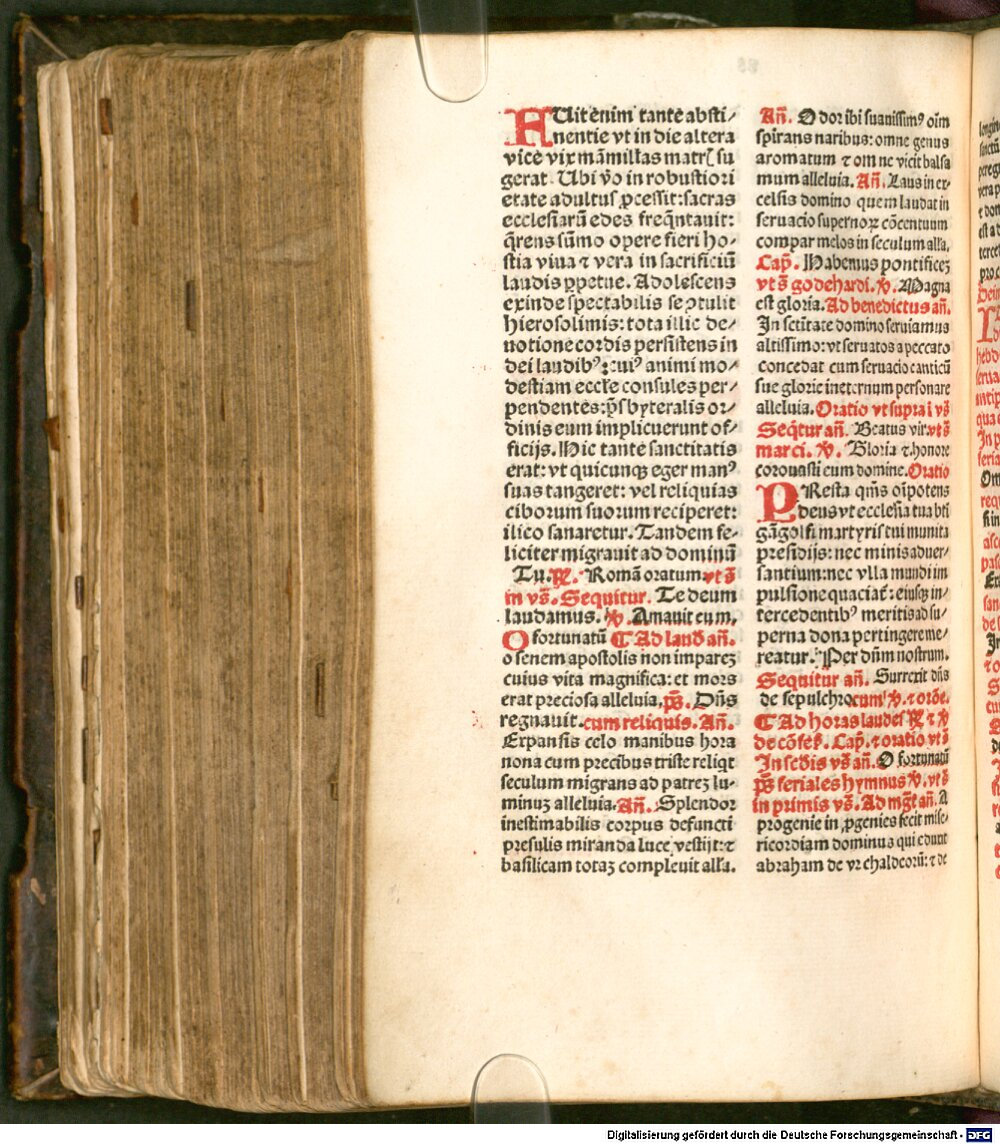 FUit enim tante absti/
nentie vt in die altera
vice vix mãmillas matrꝭ su
gerat. Ubi v̾o in robustiori
etate adultus ꝓcessit: sacras
ecclesiarũ edes freq̃ntauit:
q̃rens sũmo opere fieri ho/
stia viua ⁊ vera in sacrificiũ
laudis ꝑpetue. Adolescens
exinde spectabilis se ꝯtulit
hierosolimis: tota illic de/
uotione cordis persistens in
dei laudibꝰ: cuiꝰ animi mo/
destiam eccľe consules per/
pendentes: p̃sbyteralis or/
dinis eum implicuerunt of/
ficijs. Hic tante sanctitatis
erat: vt quicunqꝫ eger manꝰ
suas tangeret: vel reliquias
ciborum suorum reciperet:
ilico sanaretur. Tandem fe/
liciter migrauit ad dominũ
Tu. ℞. Romã oratum. vt s̃
in vs̃. Sequitur. Te deum
laudamus. ℣. Amauit eum.
O fortunatũ ¶ Ad laud̾ añ.
o senem apostolis non impareꝫ
cuius vita magnifica: et mors
erat preciosa alleuia. ps̃. Dñs
regnauit. cum reliquis. Añ.
Expansis celo manibus hora
nona cum precibus triste reliqt
seculum migrans ad patreꝫ lu/
minuꝫ alleluia. Añ. Splendor
inestimabilis corpus defuncti
presulis miranda luce vestijt: ⁊
basilicam totaꝫ compleuit alľa.
Añ. Odor ibi suauissimꝰ oĩm
spirans naribus: omne genus
aromatum ⁊ omne vicit balsa
mum alleluia. Añ. Laus in ex-
celsis domino quem laudat in
seruacio supernoꝝ cõcentuum
compar melos in seculum alľa.
Cap̾. Habemus pontificeꝫ
vt s̃ godehardi. ℣. Magna
est gloria. Ad benedictus añ.
In sctitate domino seruiamus
altissimo: vt seruatos a peccato
concedat cum seruacio canticũ
sue glorie ineternum personare
alleluia. Oratio vt supra ĩ vs̃
Seq̃tur añ. Beatus vir. vt s̃
marci. ℣. Gloria ⁊ honore
coronasti eum domine. Oratio
PResta qm̃s oĩpotens
deus vt ecclesia tua bti
gãgolfi martyris tui munita
presidijs: nec minis aduer/
santium: nec vlla mundi im
pulsione quaciat̾: eiusqꝫ in/
tercedentibꝰ meritis ad su/
perna dona pertingere me/
reatur. Per dñm nostrum.
Sequitur añ. Surrexit dñs
de sepulchro. cum ℣. ⁊ orõe.
¶ Ad horas laudes ℞ ⁊ ℣
de cõfes̾. Cap̾. ⁊ oratio vt s̃
In sc̃dis vs̃ añ. O fortunatũ
ps̃ feriales hymnus ℣. vt s̃
in primis vs̃. Ad mgt̃ añ. A
progenie in ꝓgenies fecit mise/
ricordiam dominus qui eduxit
abraham de vr chaldeorũ: ⁊ de
Digitalisierung gefördert durch die Deutsche Forschungsgemeinschaft - DFG